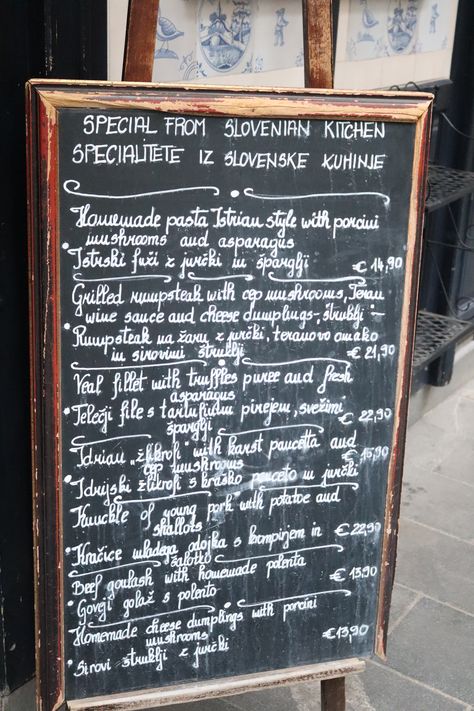 SPECIAL FROM SLOVENIAN KITCHEN
SPECIALITETE IZ SLOVENSKE KUHINJE
Homemade pasta Istrian style with porcini
mushrooms and asparagus
Istrski fuži z jurčki in šparglji € 14,90
Grilled rumpsteak with cep mushrooms, Teran
wine sauce and cheese dumplings - "štruklji"
Rumpsteak na žaru z jurčki, teranovo omako
in sirovimi štruklji € 21,90
Veal fillet with truffles puree and fresh
asparagus
Telečji file s tartufovim pirejem, svežimi € 22,90
šparglji
Idrian "žlikrofi" with karst pancetta and
cep mushrooms € 15,90
Idrijski žlikrofi s kraško panceto in jurčki
Knuckle of young pork with potatoe and
shallots
Kračice mladega odojka s krompirjem in € 22,90
šalotko
Beef goulash with homemade polenta
Goveji golaž s polento € 13,90
Homemade cheese dumplings with porcini
mushrooms € 13,90
Sirovi štruklji z jurčki